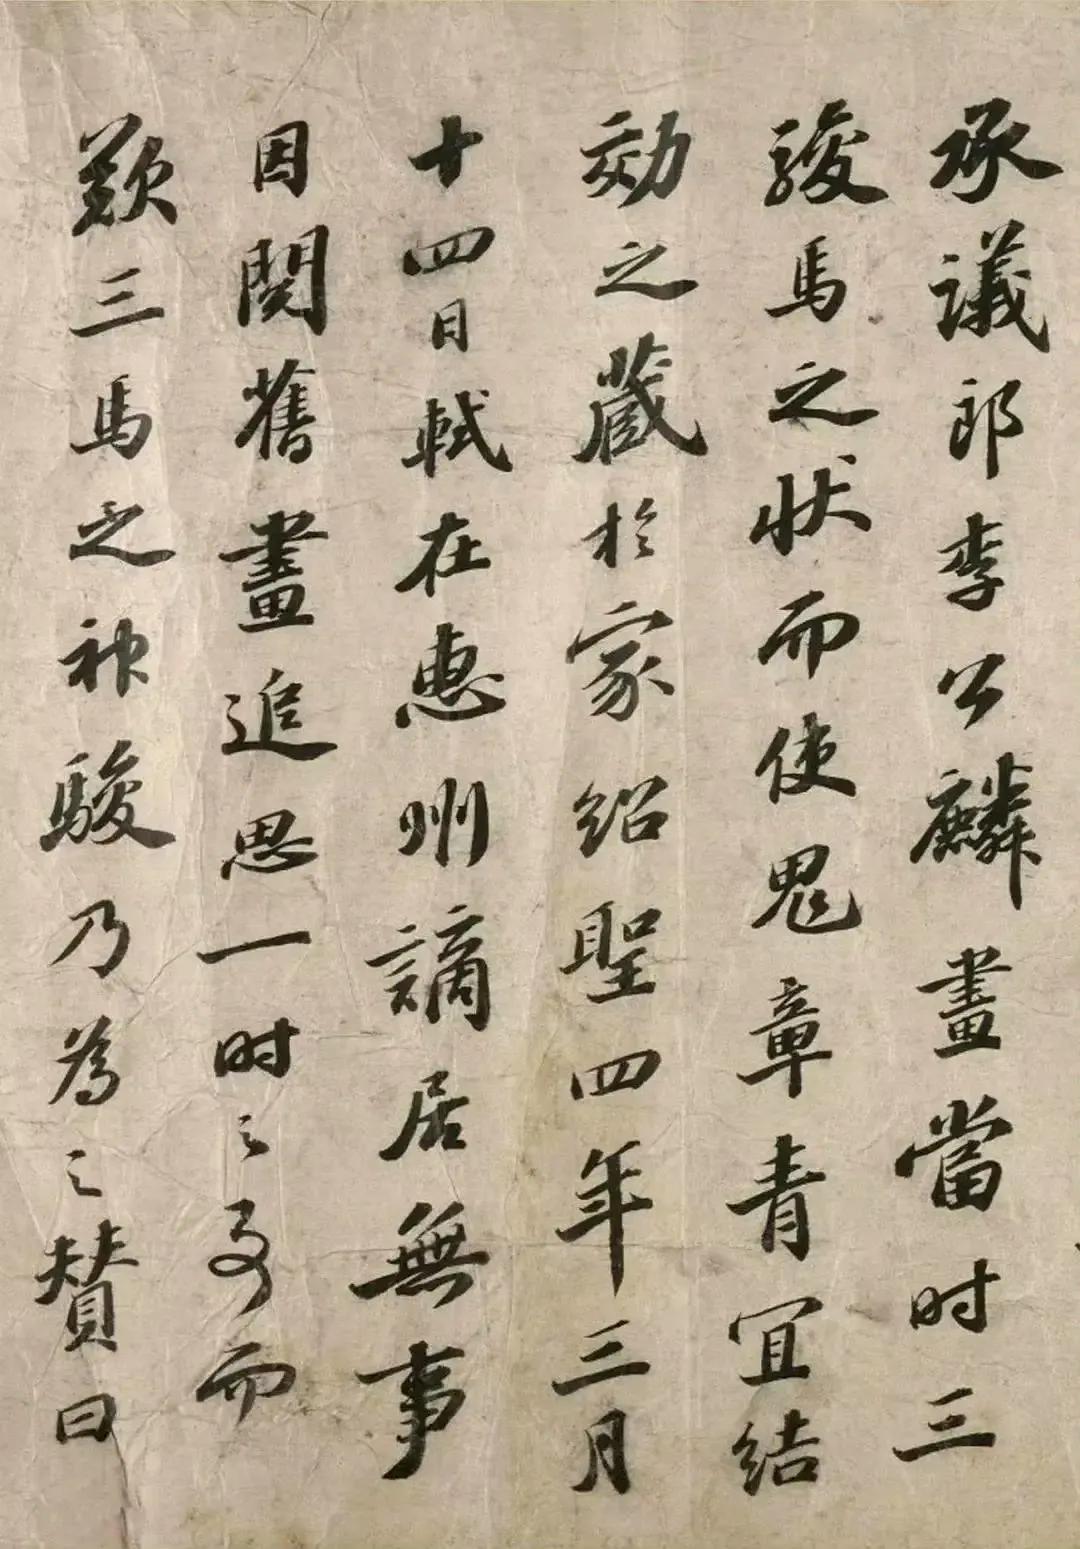 承議郎李公麟畫當时三
駿馬之状而使鬼章青宜结
効之藏於家绍聖四年三月
十四日軾在惠州謫居無事
因閱舊畫追思一时之事而
歎三馬之神駿乃為之贊曰